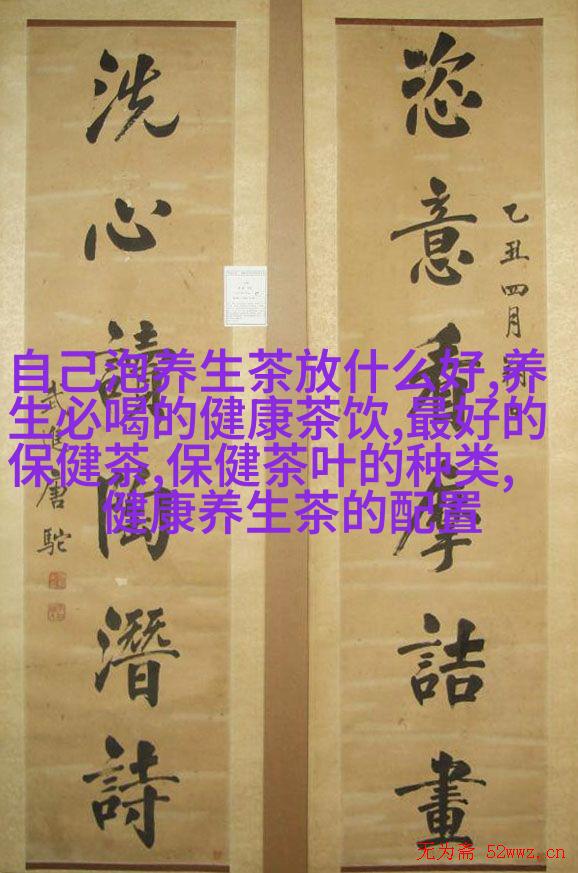 恣意看摩詰畫
乙丑四月
洗心讀陶潛詩
武進唐駝
自己泡养生茶放什么好,养
生必喝的健康茶饮,最好的
保健茶,保健茶叶的种类,
健康养生茶的配置
无为斋 52wwz.cn